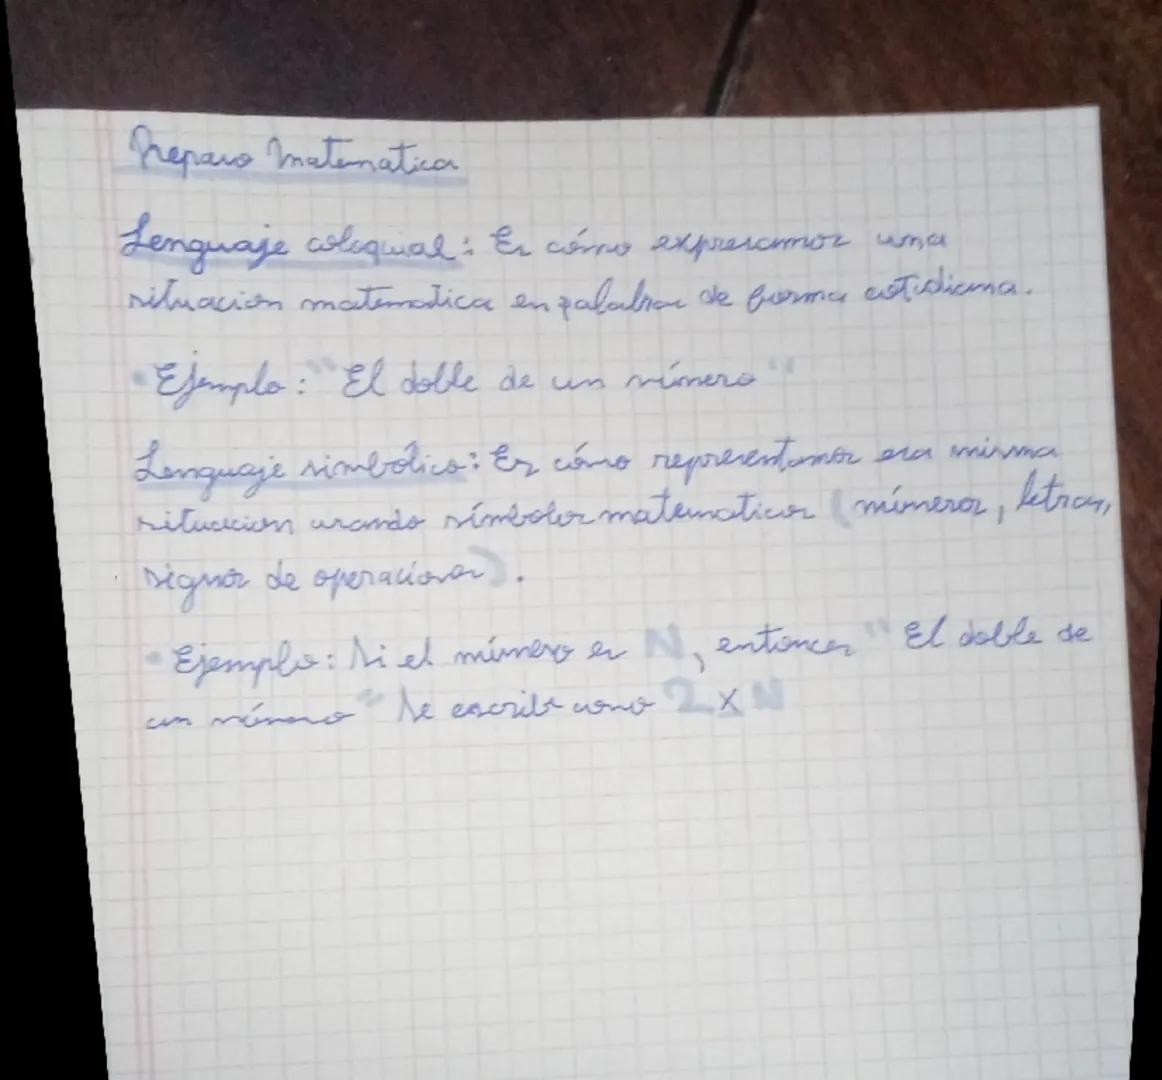 Repaso Matematica
Lenguaje coloquial: Es cómo expresamos una
situacion matematica en palabras de forma cotidiana.
• Ejemplo: "El doble de un número"
Lenguaje simbólico: Es cómo representamos esa misma
situacion usando símbolos matematicos (números, letras,
signos de operaciones).
• Ejemplo: Si el número es N, entonces "El doble de
un número" Se escribe como 2 x N